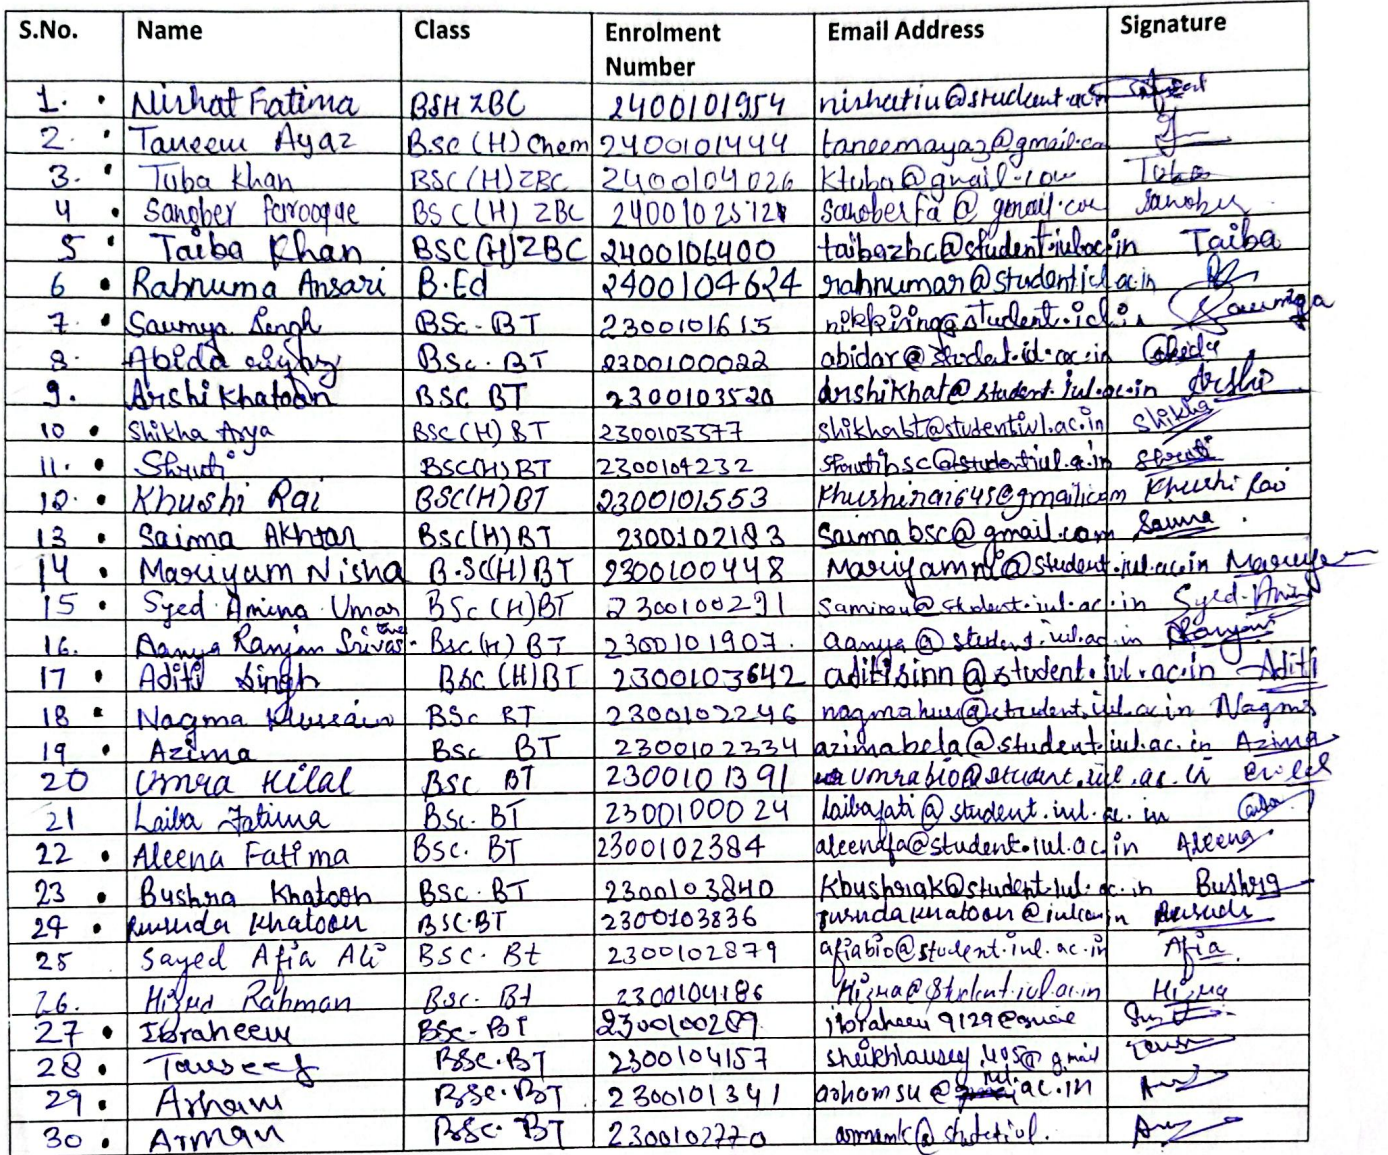 S.No. Name Class Enrolment Number Email Address Signature
1. Nishat Fatima BSH ZBC 2400101954 nishatiu@student.ac.in
2. Taneem Ayaz B.Sc (H) Chem 2400101444 taneemayaz@gmail.co
3. Tuba Khan BSC (H) ZBC 2400104026 Ktuba@gmail.com Tuba
4 Sanober farooque BSC (H) ZBC Sanoberfa@gmail.com Sanober
5 Taiba Khan BSC (H) ZBC 2400106400 taibazbc@student.iul.ac.in Taiba
6 Rahnuma Ansari B.Ed 2400104624 rahnumar@student.iul.ac.in
7. Saumya Singh BSc. BT 2300101615 Saumya
8. Abida BSc. BT 2300100022 Abida
9. Arshi Khatoon BSC BT 2300103520 arshikhat@student.iul.ac.in Arshi
10 Shikha Arya BSC (H) BT 2300103377 shikhabt@studentiul.ac.in Shikha
11. Shruti BSC(H) BT 2300104232 Shrutibsc@studentiul.a.in Shruti
12. Khushi Rai BSC(H) BT 2300101553 khushirai645@gmail.com Khushi Rai
13 Saima Akhtar BSC(H) BT 2300102183 Saimabsc@gmail.com Saima
14 Mariyam Nisha B.SC(H) BT 2300100448 Mariyamni@student.iul.ac.in Mariya
15 Syed Amina Umar BSc (H) BT 2300100291 @student.iul.ac.in Syed Amina
16. Aanya Ranjan Srivastava Bsc (H) BT 2300101907. aanya@student.iul.ac.in
17 Aditi Singh BSc (H) BT 2300103642 aditisinn@student.iul.ac.in Aditi
18 Nagma Hussain BSc BT 2300102246 nagmahus@student.iul.ac.in Nagma
19 Azima BSc BT 2300102334 azimabela@student.iul.ac.in Azima
20 Umra Hilal BSC BT 2300101391 umrabio@student.iul.ac.in
21 Laiba Fatima BSc. BT 2300100024 laibafati@student.iul.ac.in
22 Aleena Fatima BSc. BT 2300102384 aleenafa@student.iul.ac.in Aleena
23 Bushra Khatoon BSC. BT 2300103840 Kbushrak@student.iul.ac.in Bushra
24 Khatoon BSC. BT 2300103836
25 Sayed Afia Ali BSC. Bt 2300102879 afiabio@student.iul.ac.in Afia
26. Rahman BSC. Bt 2300104186
27 Ibraheem BSc. BT 2300100289
28 Tauseef BSc. BT 2300104157
29 Arham BSc. BT 2300101341 arhamsu@iul.ac.in
30 Arman BSc. BT 2300102770